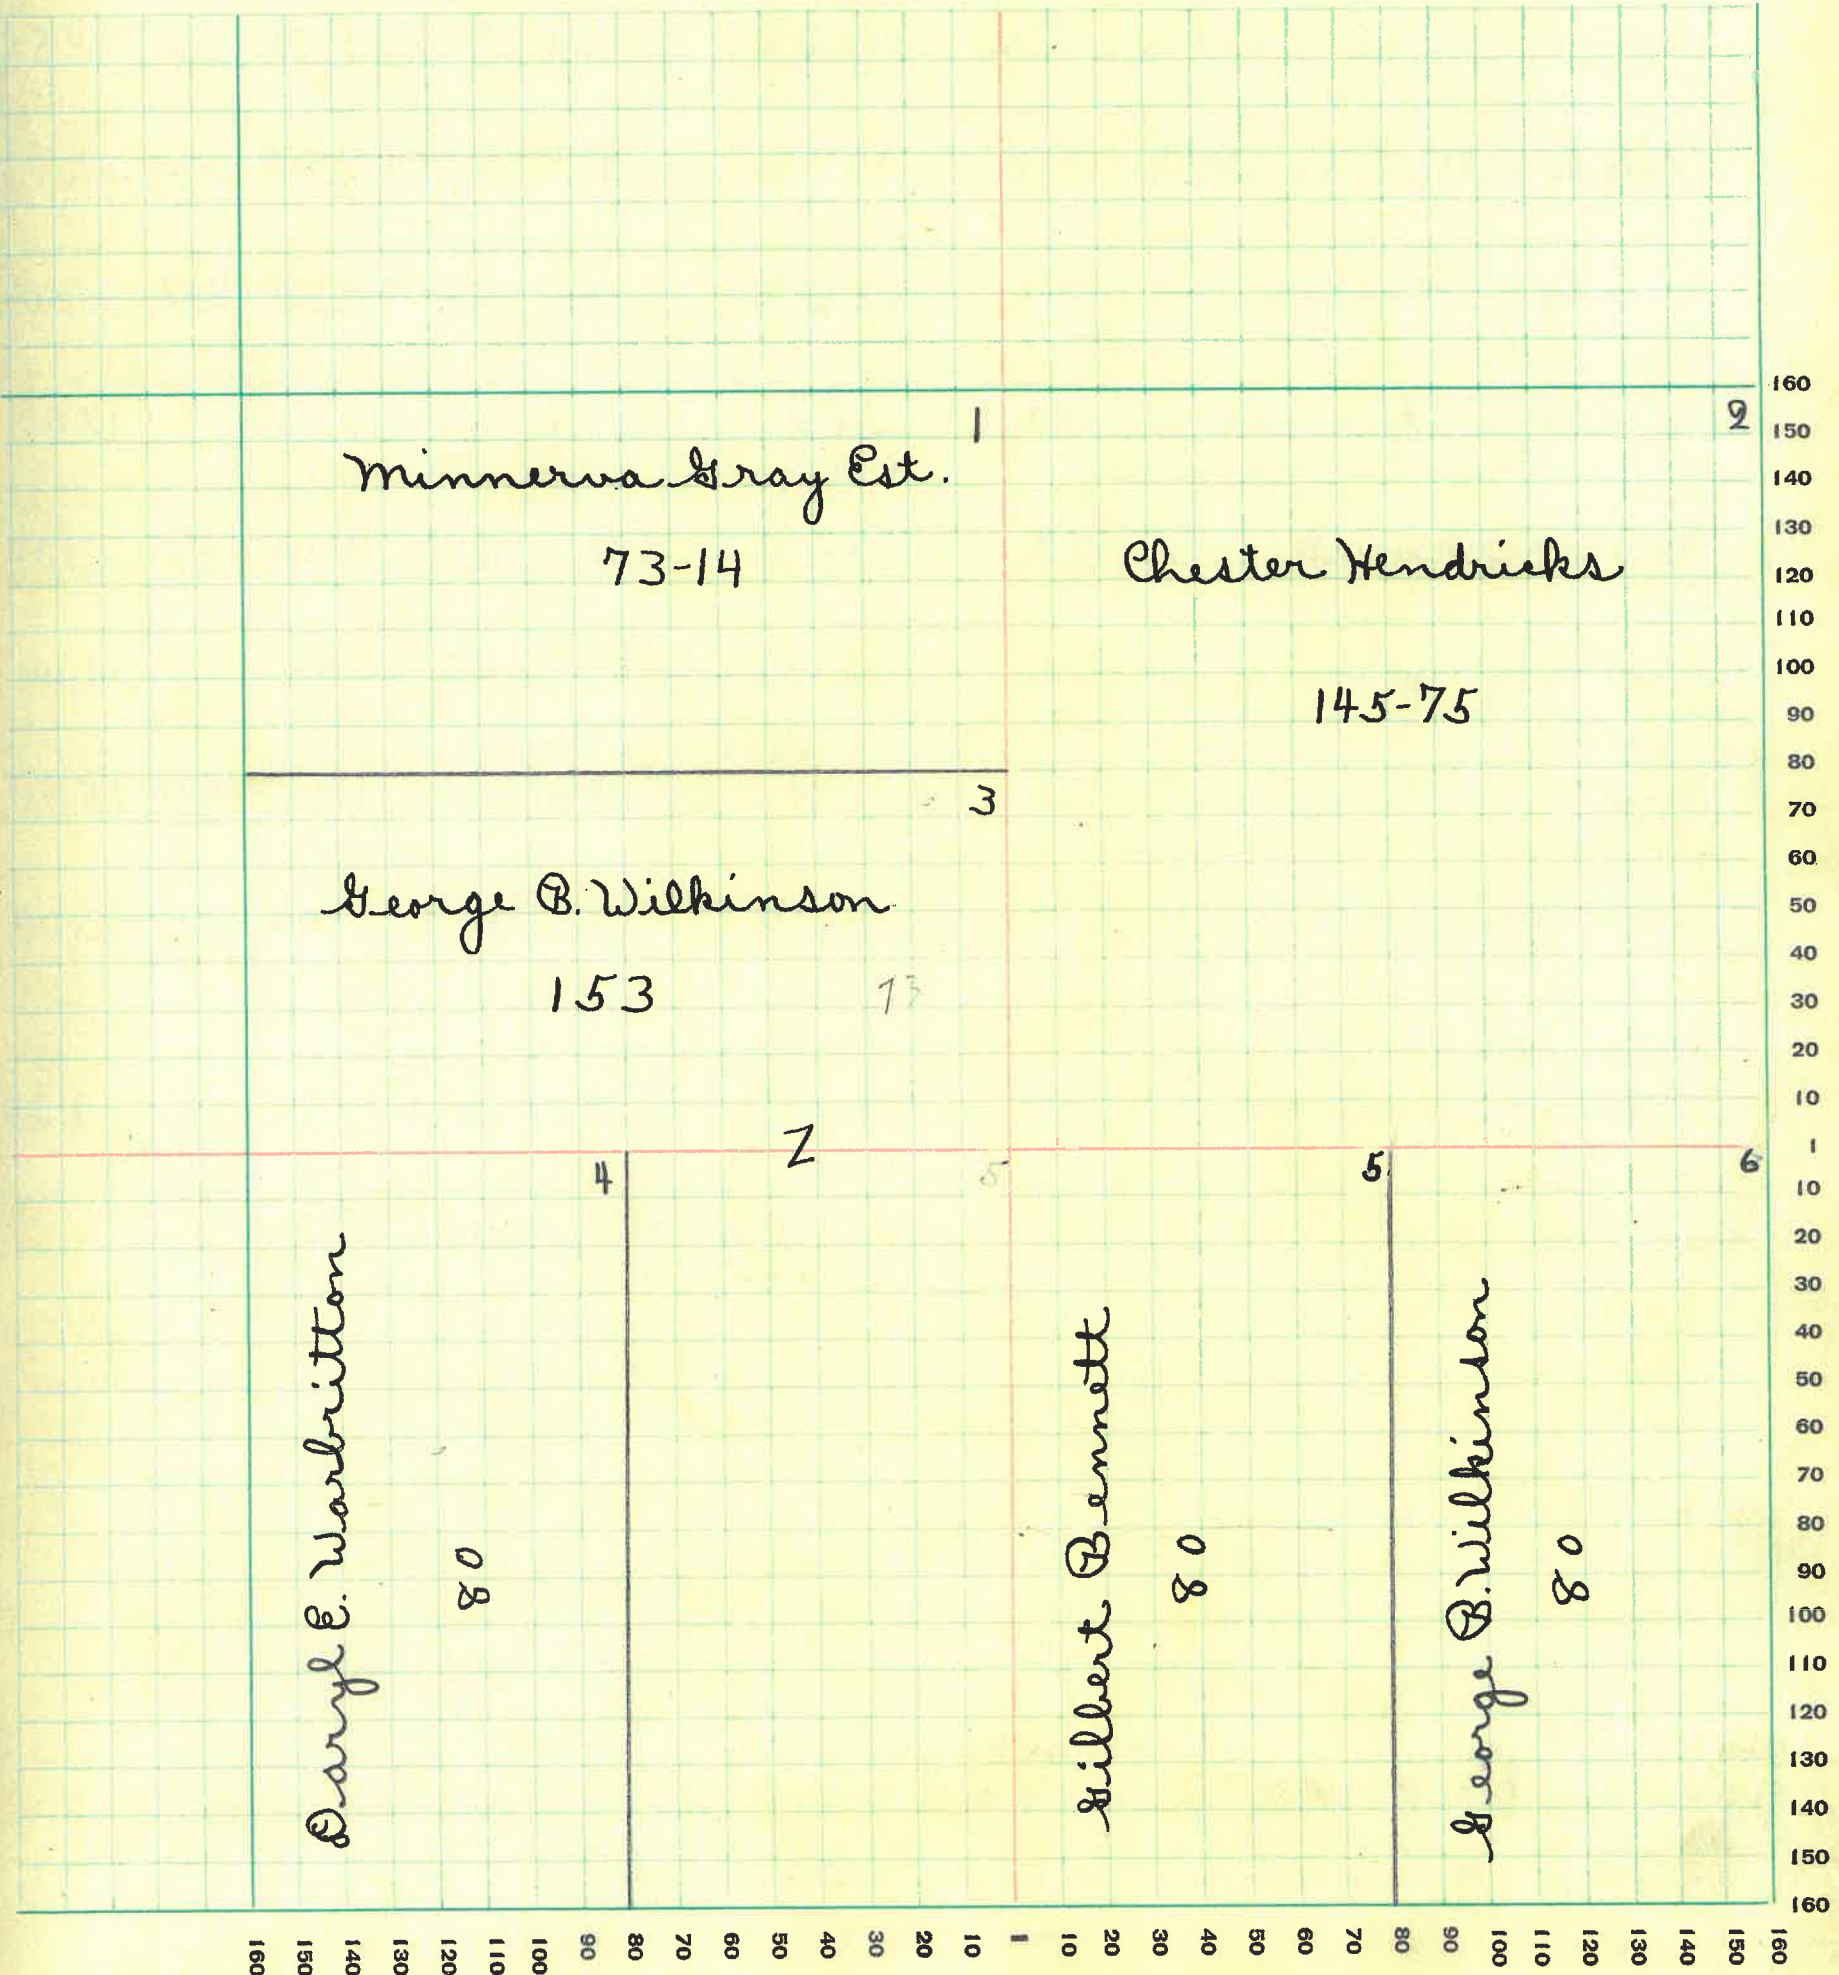 1
Minnerva Gray Est.
73-14
2
Chester Hendricks
145-75
3
George B. Wilkinson
153
Z
4
Daryl E. Warbritton
80
5
5
Gilbert Bennett
80
6
George B. Wilkinson
80
160
150
140
130
120
110
100
90
80
70
60
50
40
30
20
10
1
10
20
30
40
50
60
70
80
90
100
110
120
130
140
150
160
160 150 140 130 120 110 100 90 80 70 60 50 40 30 20 10 1 10 20 30 40 50 60 70 80 90 100 110 120 130 140 150 160